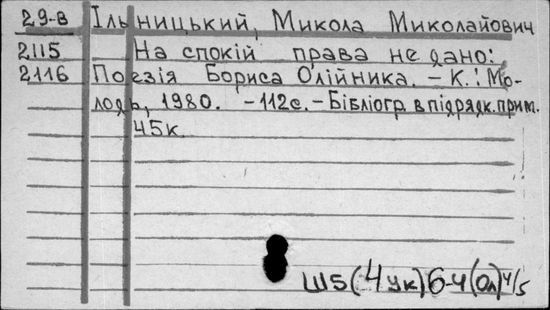 29-в Ільницький, Микола Миколайович
2115 На спокій права не дано:
2116 Поезія Бориса Олійника. – К.: Мо-
лодь, 1980. – 112с. – Бібліогр. в підрядк. прим.
45к.
Ш5(4Ук)6-4(Ол)4/5